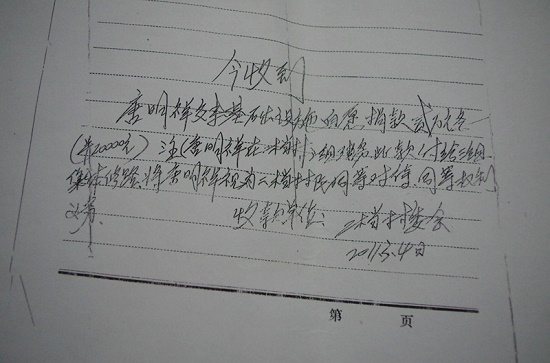 今收到
唐明祥交来基础设施自愿捐款贰万元
(¥20000元) 注(唐明祥在二档村 组建房此款付给 组
集体修路,将唐明祥视为二档村民同等对待,同等权利
义务.
收款单位: 二档村委会
2011.3.4日
第 页